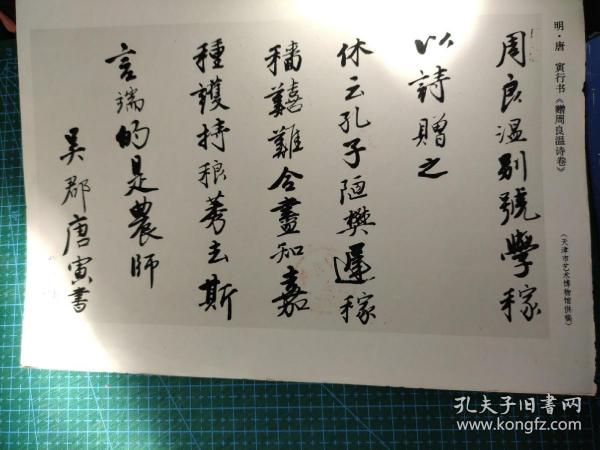 明·唐 寅行书《赠周良温诗卷》
（天津市艺术博物馆供稿）
周良温别號學稼
以詩贈之
休云孔子陋樊遲稼
穡囏難合盡知嘉
種護持稂莠去斯
言端的是農師
吴郡唐寅書
孔夫子旧书网
www.kongfz.com